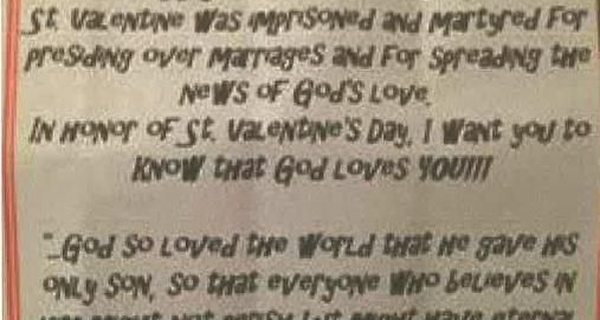 St. Valentine was imprisoned and martyred for
presiding over marriages and for spreading the
news of God's love.
In honor of St. Valentine's Day, I want you to
know that God loves YOU!!!
"...God so loved the world that He gave His
only Son, so that everyone who believes in
might not perish but might have eternal